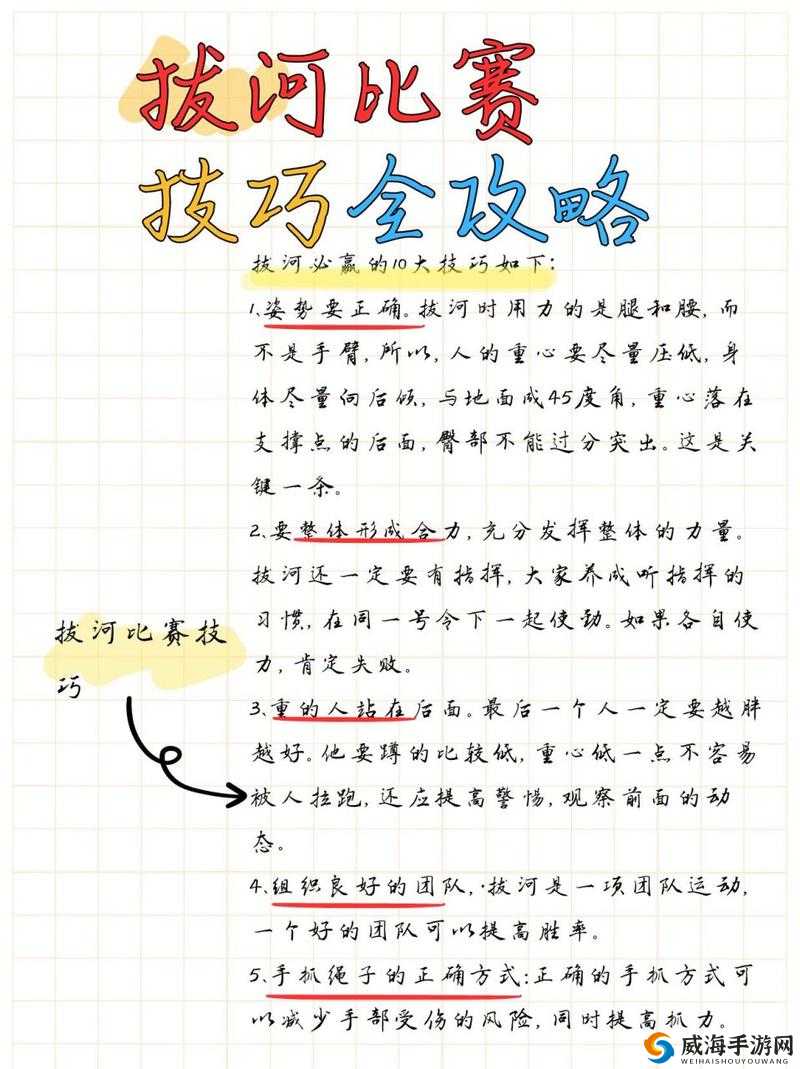 拔河比赛
技巧全攻略
拔河必赢的10大技巧如下:
1、姿势要正确。拔河时用力的是腿和腰,而
不是手臂,所以,人的重心要尽量压低,身
体尽量向后倾,与地面成45度角,重心落在
支撑点的后面,臀部不能过分突出。这是关
键一条。
2、要整体形成合力,充分发挥整体的力量。
拔河还一定要有指挥,大家养成听指挥的
习惯,在同一号令下一起使劲。如果各自使
力,肯定失败。
拔河比赛技
巧
3、重的人站在后面。最后一个人一定要越胖
越好。他要蹲的比较低,重心低一点不容易
被人拉跑,还应提高警惕,观察前面的动
态。
4、组织良好的团队,·拔河是一项团队运动,
一个好的团队可以提高胜率。
5、手抓绳子的正确方式:正确的手抓方式可
以减少手部受伤的风险,同时提高抓力。
威海手游网
WEIHAISHOUYOUWANG